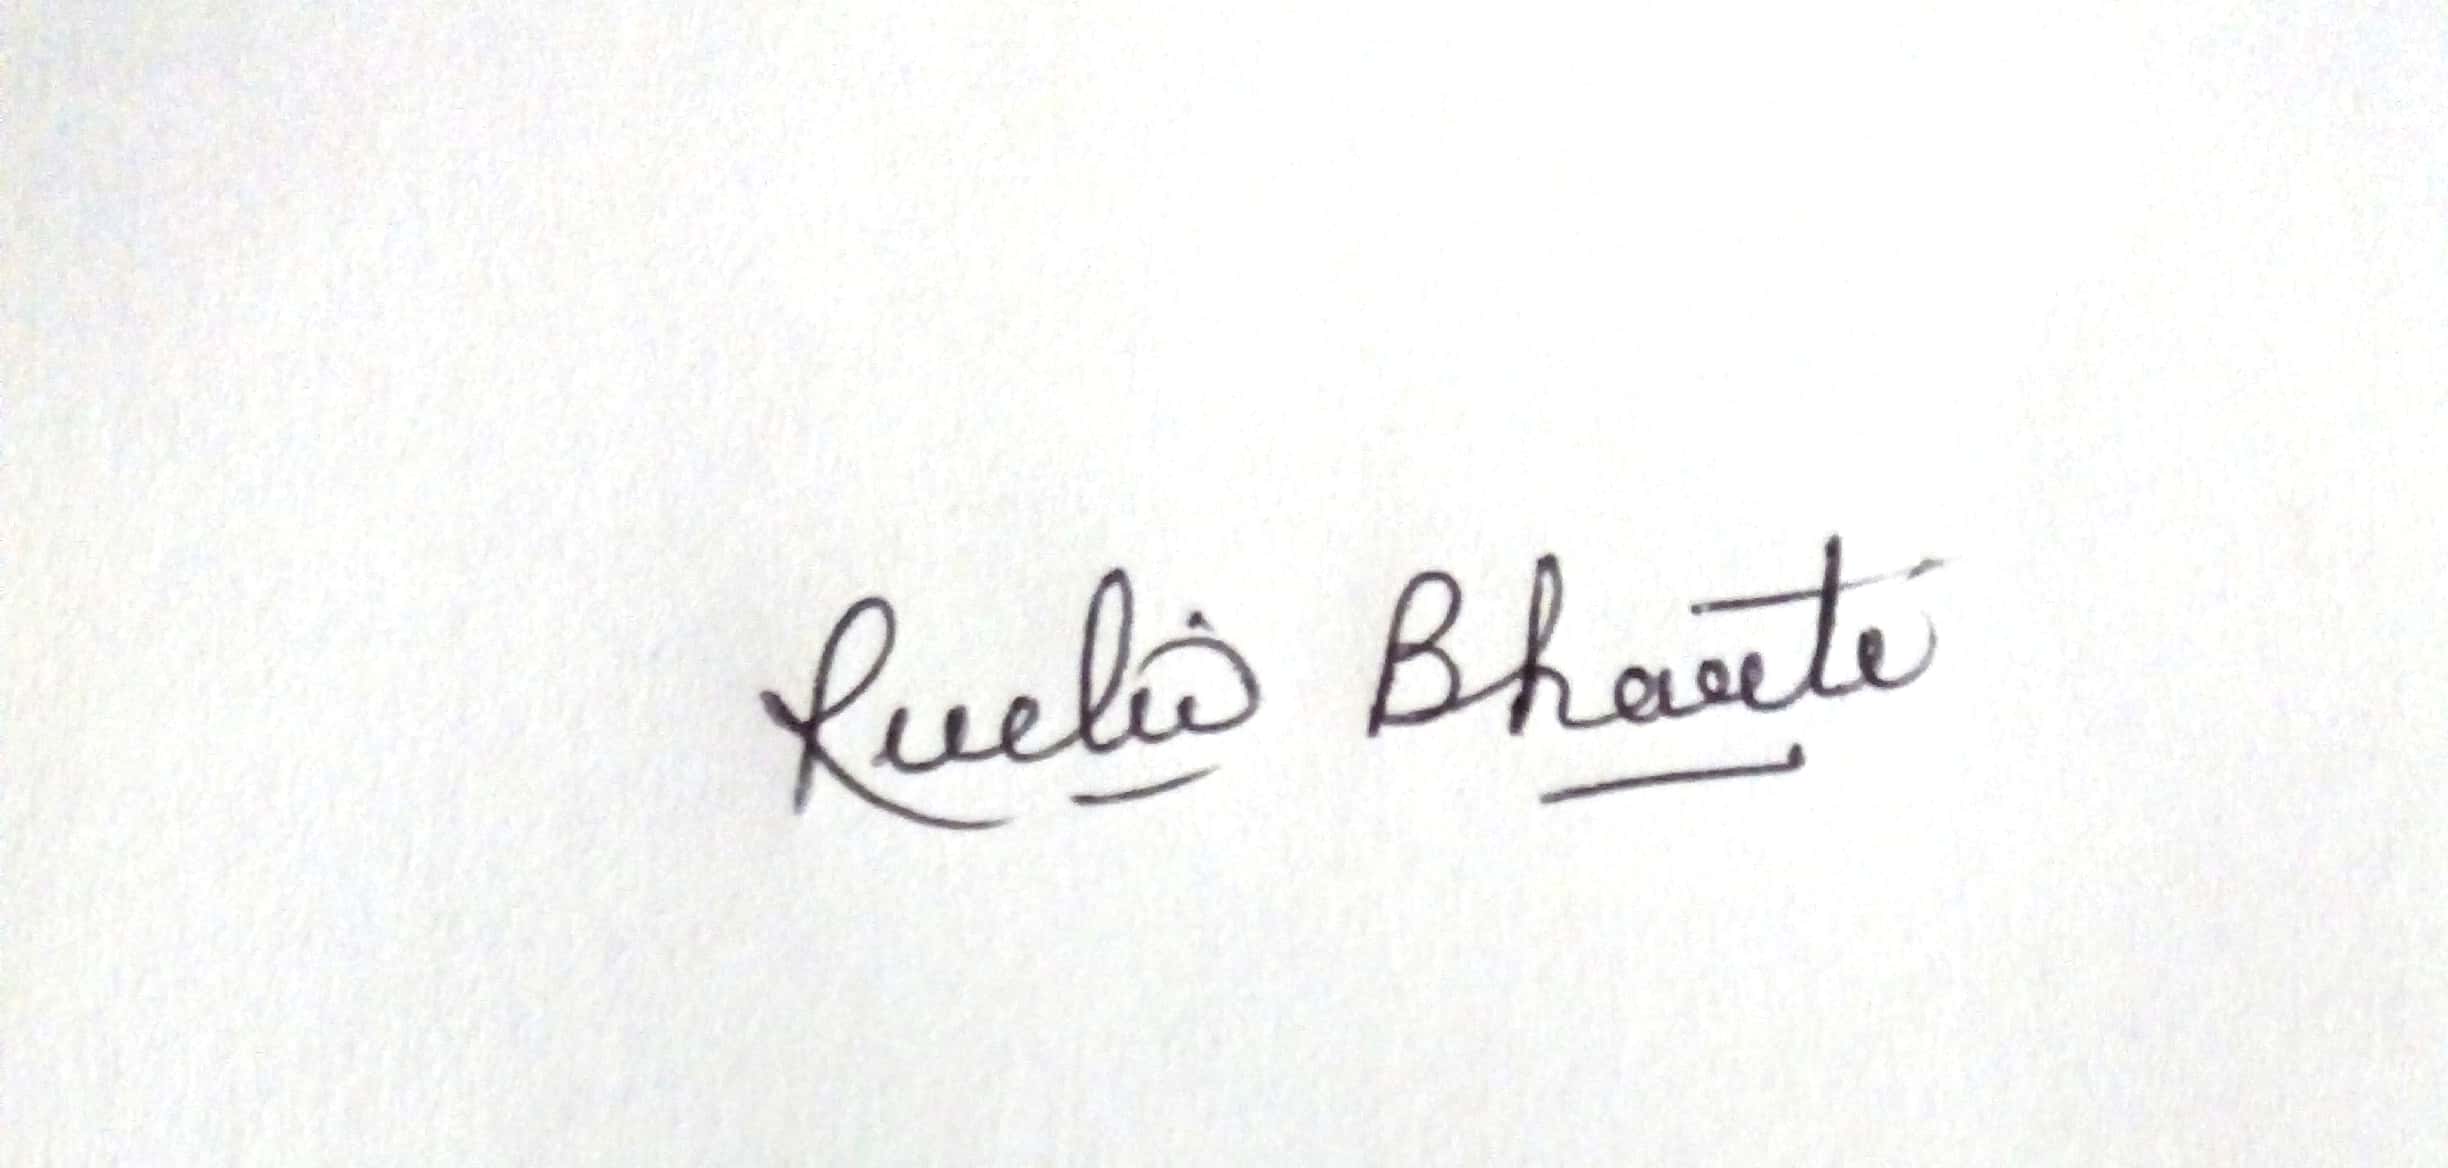 Ruchi Bharti